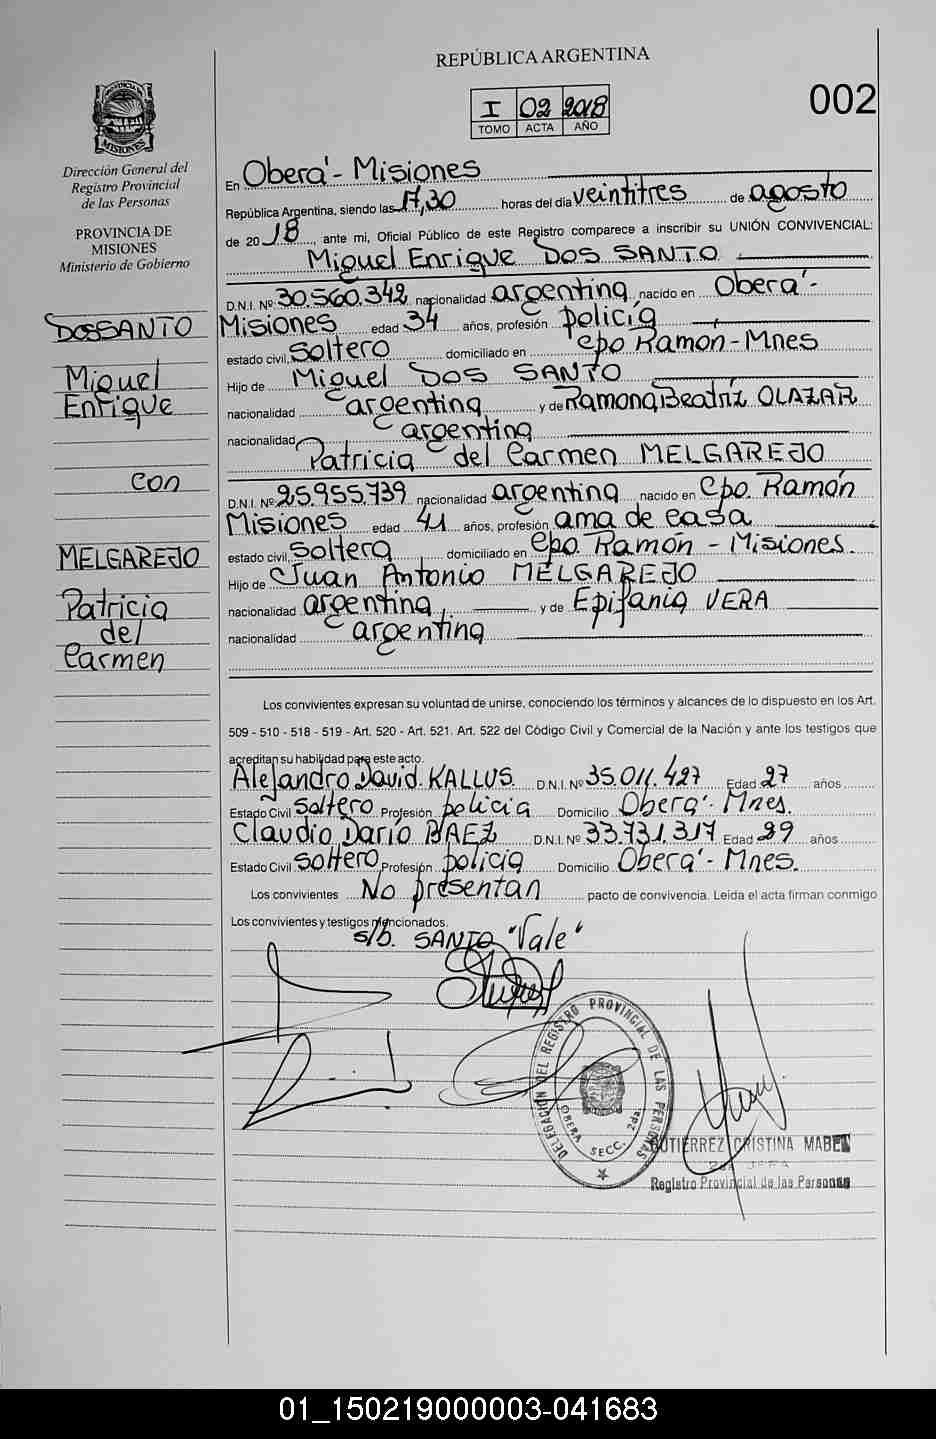 REPÚBLICA ARGENTINA
I 02 2018
TOMO ACTA AÑO
002
PROVINCIA DE
MISIONES
Dirección General del
Registro Provincial
de las Personas
PROVINCIA DE
MISIONES
Ministerio de Gobierno
DOSSANTO
Miguel
Enrique
con
MELGAREJO
Patricia
del
Carmen
En Oberá - Misiones
República Argentina, siendo las 17,30 horas del día veintitres de agosto
de 2018, ante mi, Oficial Público de este Registro comparece a inscribir su UNIÓN CONVIVENCIAL:
Miguel Enrique DOS SANTO
D.N.I. Nº 30.560.342 nacionalidad argentina nacido en Oberá -
Misiones edad 34 años, profesión policía
estado civil, soltero domiciliado en cpo Ramon - Mnes
Hijo de Miguel DOS SANTO
nacionalidad argentina y de Ramona Beatríz OLAZAR
nacionalidad argentina
Patricia del Carmen MELGAREJO
D.N.I. Nº 25.955.739 nacionalidad argentina nacido en Cpo. Ramón
Misiones edad 41 años, profesión ama de casa
estado civil, soltera domiciliado en Cpo. Ramón - Misiones.
Hijo de Juan Antonio MELGAREJO
nacionalidad argentina y de Epifania VERA
nacionalidad argentina
Los convivientes expresan su voluntad de unirse, conociendo los términos y alcances de lo dispuesto en los Art.
509 - 510 - 518 - 519 - Art. 520 - Art. 521. Art. 522 del Código Civil y Comercial de la Nación y ante los testigos que
acreditan su habilidad para este acto.
Alejandro David KALLUS. D.N.I. Nº 35.011.427 Edad 27 años
Estado Civil soltero Profesión policia Domicilio Oberá - Mnes.
Claudio Darío BAEZ D.N.I. Nº 33.731.317 Edad 29 años
Estado Civil soltero Profesión policia Domicilio Oberá - Mnes.
Los convivientes No presentan pacto de convivencia. Leida el acta firman conmigo
Los convivientes y testigos mencionados.
s/b. SANTO "Vale"
DELEGACION DEL REGISTRO PROVINCIAL DE LAS PERSONAS
OBERA SECC. 2da.
GUTIERREZ CRISTINA MABEL
JEFA
Registro Provincial de las Personas
01_150219000003-041683